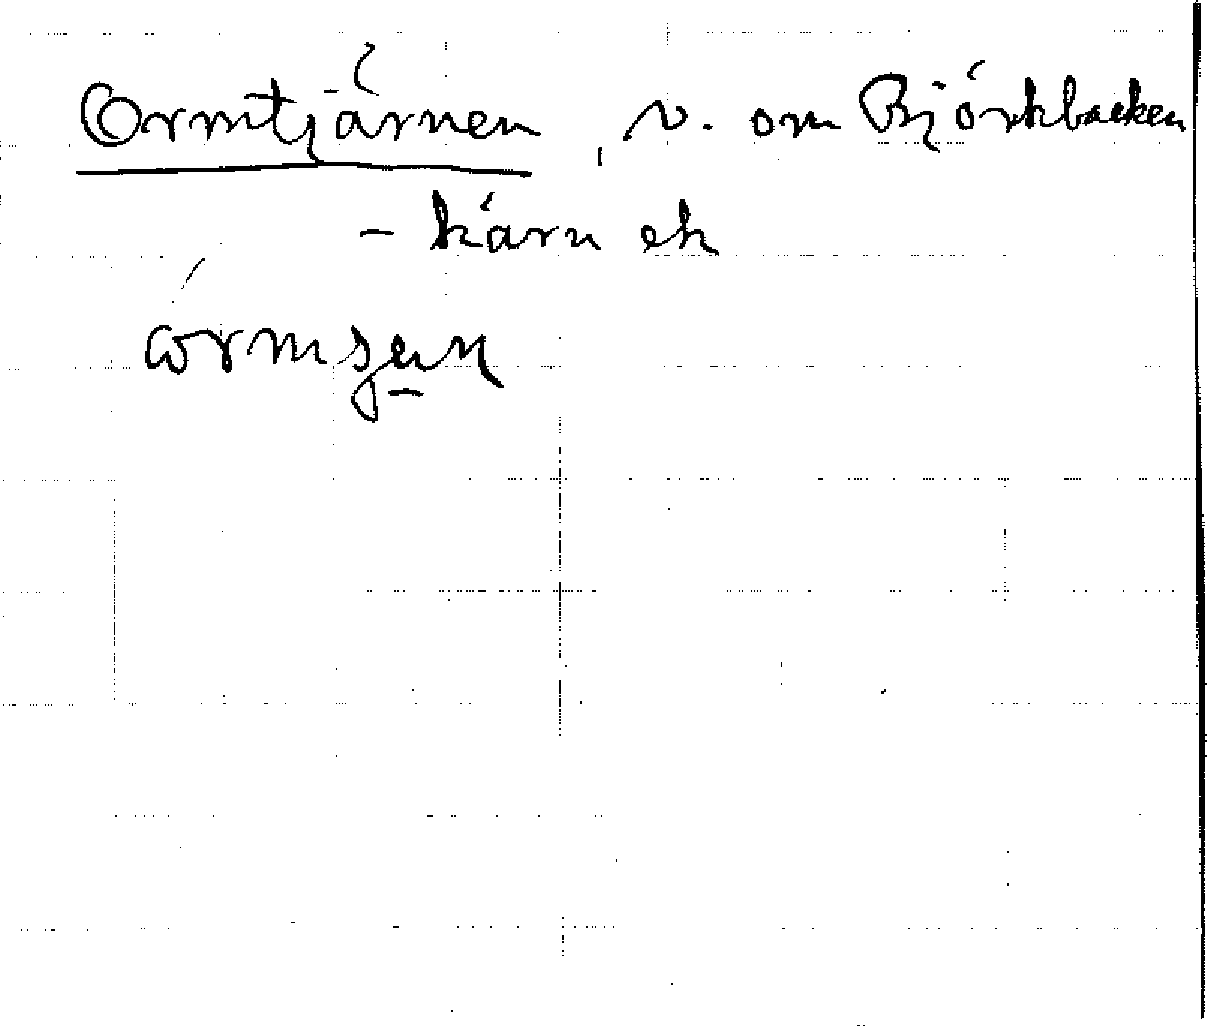 Ormtjärnen, v. om Björkbacken
- kärn ek